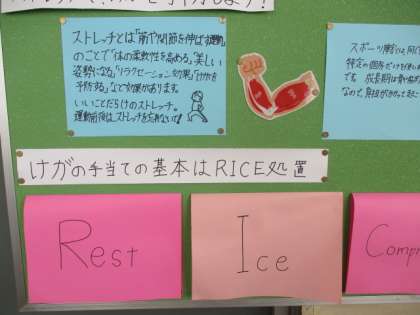 ストレッチとは「筋や関節を伸ばす運動」
のことで「体の柔軟性を高める」「美しい
姿勢になる」「リラクセーション効果」「けがを
予防する」などの効果があります。
いいことだらけのストレッチ。
運動前後はストレッチを忘れないで!
スポーツ障害
特定の
です。成長期は骨や筋
なので、
けがの手当ての基本はRICE処置
Rest
Ice
Comp